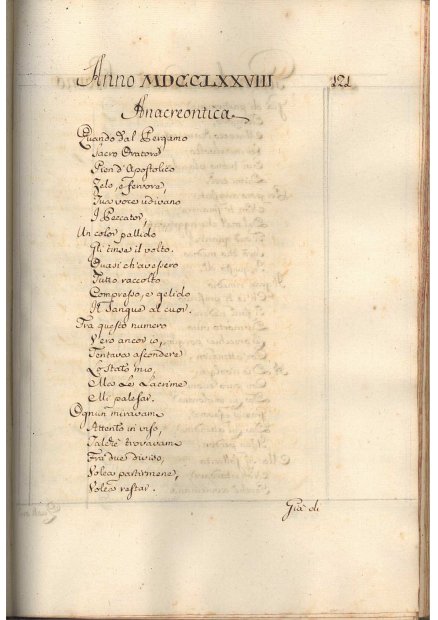 Anno MDCCLXXVIII 121
Anacreontica
Quando dal Pergamo
Sacro Oratore
Pien d'Apostolico
Zelo, e fervore,
Tua voce udivano
I Peccator,
Un color pallido
Gli tinse il volto.
Quasi ch'avessero
Tutto raccolto
Compresso, e gelido
Il Sangue al cuor.
Tra questo numero
V'ero ancor io,
Tentava ascondere
Lo Stato mio,
Ma Le Lacrime
Mi palesar.
Ognun miravami
Attento in viso,
Talchè trovavami
Fra due diviso,
Volea partirmene,
Volea restar.
Già di